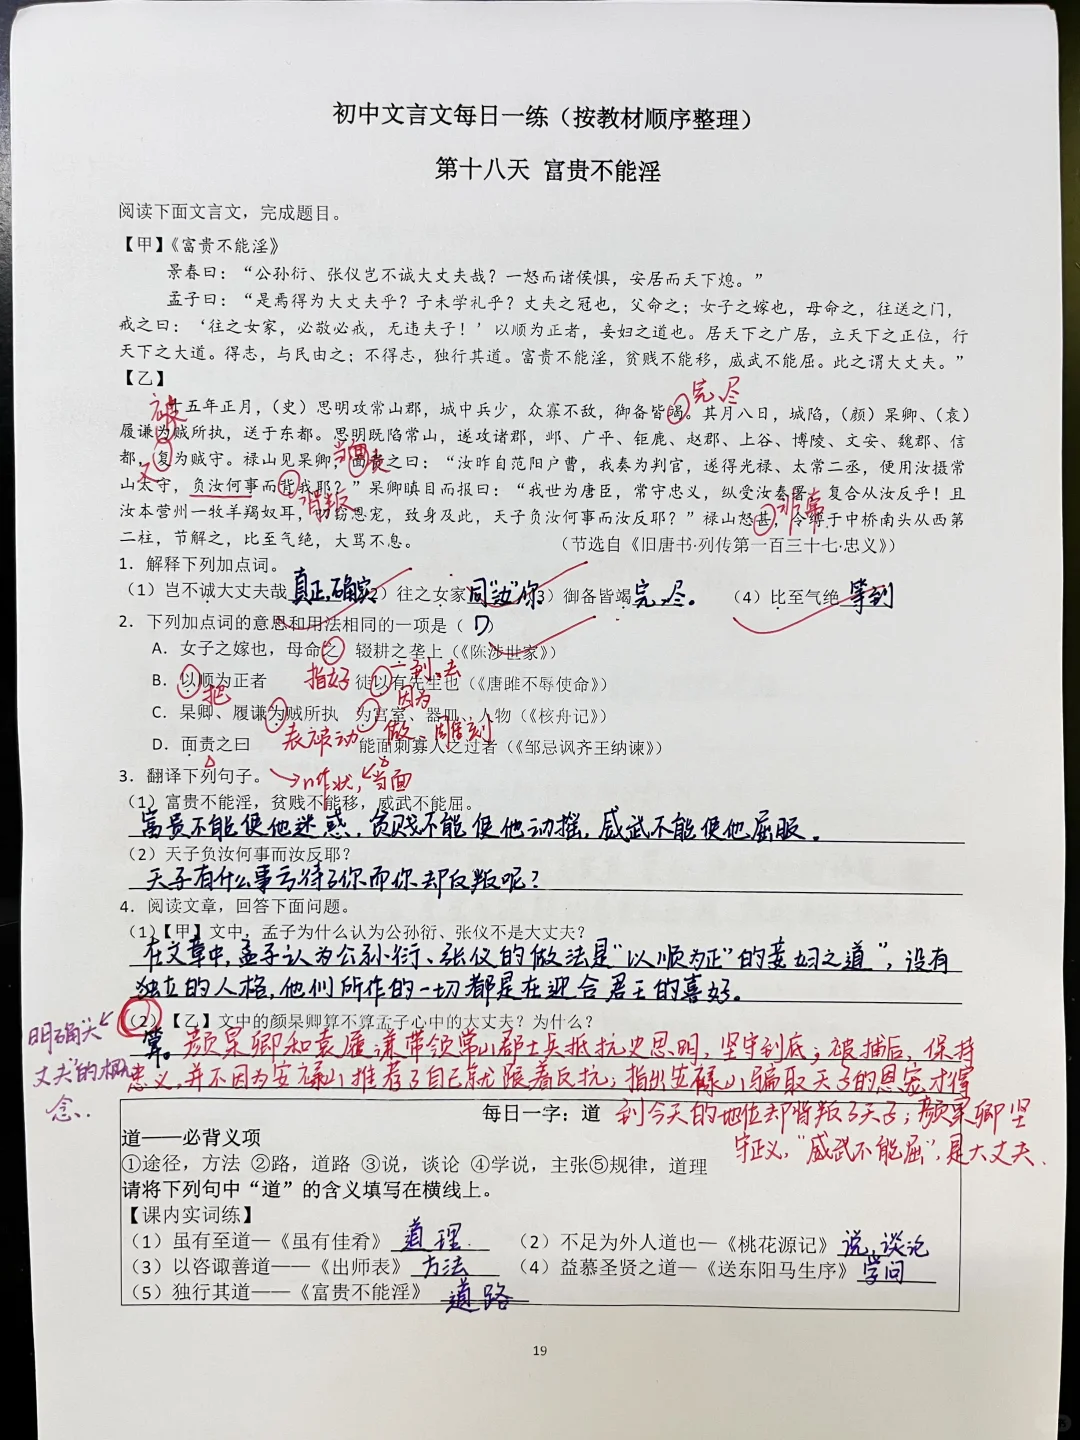 初中文言文每日一练（按教材顺序整理）
第十八天 富贵不能淫
阅读下面文言文，完成题目。
【甲】《富贵不能淫》
景春曰：“公孙衍、张仪岂不诚大丈夫哉？一怒而诸侯惧，安居而天下熄。”
孟子曰：“是焉得为大丈夫乎？子未学礼乎？丈夫之冠也，父命之；女子之嫁也，母命之，往送之门，
戒之曰：‘往之女家，必敬必戒，无违夫子！’以顺为正者，妾妇之道也。居天下之广居，立天下之正位，行
天下之大道。得志，与民由之；不得志，独行其道。富贵不能淫，贫贱不能移，威武不能屈。此之谓大丈夫。”
【乙】
完.尽
十五年正月，（史）思明攻常山郡，城中兵少，众寡不敌，御备皆竭。其月八日，城陷，（颜）杲卿、（袁）
被
履谦为贼所执，送于东都。思明既陷常山，遂攻诸郡，邺、广平、钜鹿、赵郡、上谷、博陵、文安、魏郡、信
当面
都，复为贼守。禄山见杲卿，面责之曰：“汝昨自范阳户曹，我奏为判官，遂得光禄、太常二丞，便用汝摄常
又
山太守，负汝何事而背我耶？”杲卿瞋目而报曰：“我世为唐臣，常守忠义，纵受汝奏署，复合从汝反乎！且
背叛 非常
汝本营州一牧羊羯奴耳，叨窃恩宠，致身及此，天子负汝何事而汝反耶？”禄山怒甚，令缚于中桥南头从西第
二柱，节解之，比至气绝，大骂不息。 （节选自《旧唐书·列传第一百三十七·忠义》）
1．解释下列加点词。
（1）岂不诚大丈夫哉 真正,确实 （2）往之女家 同“汝”你 （3）御备皆竭 完.尽。 （4）比至气绝 等到
2．下列加点词的意思和用法相同的一项是（ D ）
A．女子之嫁也，母命之 辍耕之垄上（《陈涉世家》）
指好 到、去
B．以顺为正者 徒以有先生也（《唐雎不辱使命》）
把 因为
C．杲卿、履谦为贼所执 为宫室、器皿、人物（《核舟记》）
表被动 做、雕刻
D．面责之曰 能面刺寡人之过者（《邹忌讽齐王纳谏》）
→n作状，当面
3．翻译下列句子。
（1）富贵不能淫，贫贱不能移，威武不能屈。
富贵不能使他迷惑，贫贱不能使他动摇，威武不能使他屈服。
（2）天子负汝何事而汝反耶？
天子有什么事亏待了你而你却反叛呢？
4．阅读文章，回答下面问题。
（1）【甲】文中，孟子为什么认为公孙衍、张仪不是大丈夫？
在文章中，孟子认为公孙衍、张仪的做法是“以顺为正”的妾妇之道”，没有
独立的人格，他们所作的一切都是在迎合君王的喜好。
（2）【乙】文中的颜杲卿算不算孟子心中的大丈夫？为什么？
明确大
丈夫的概
念.
算。颜杲卿和袁履谦带领常山郡士兵抵抗史思明，坚守到底；被捕后，保持
忠义，并不因为安禄山推荐了自己就随着反抗；指出安禄山骗取天子的恩宠才得
到今天的地位却背叛了天子；颜杲卿坚
守正义，“威武不能屈”，是大丈夫.
每日一字：道
道——必背义项
①途径，方法 ②路，道路 ③说，谈论 ④学说，主张⑤规律，道理
请将下列句中“道”的含义填写在横线上。
【课内实词练】
（1）虽有至道—《虽有佳肴》 道理. （2）不足为外人道也—《桃花源记》 说,谈论
（3）以咨诹善道——《出师表》 方法 （4）益慕圣贤之道—《送东阳马生序》 学问
（5）独行其道——《富贵不能淫》 道路
19